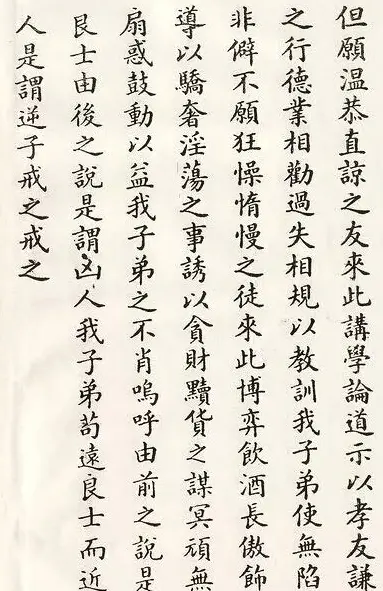 但願溫恭直諒之友來此講學論道示以孝友謙
之行德業相勸過失相規以教訓我子弟使無陷
非僻不願狂懆惰慢之徒來此博弈飲酒長傲飾
導以驕奢淫蕩之事誘以貪財黷貨之謀冥頑無
扇惑鼓動以益我子弟之不肖嗚呼由前之說是
良士由後之說是謂凶人我子弟苟遠良士而近
人是謂逆子戒之戒之